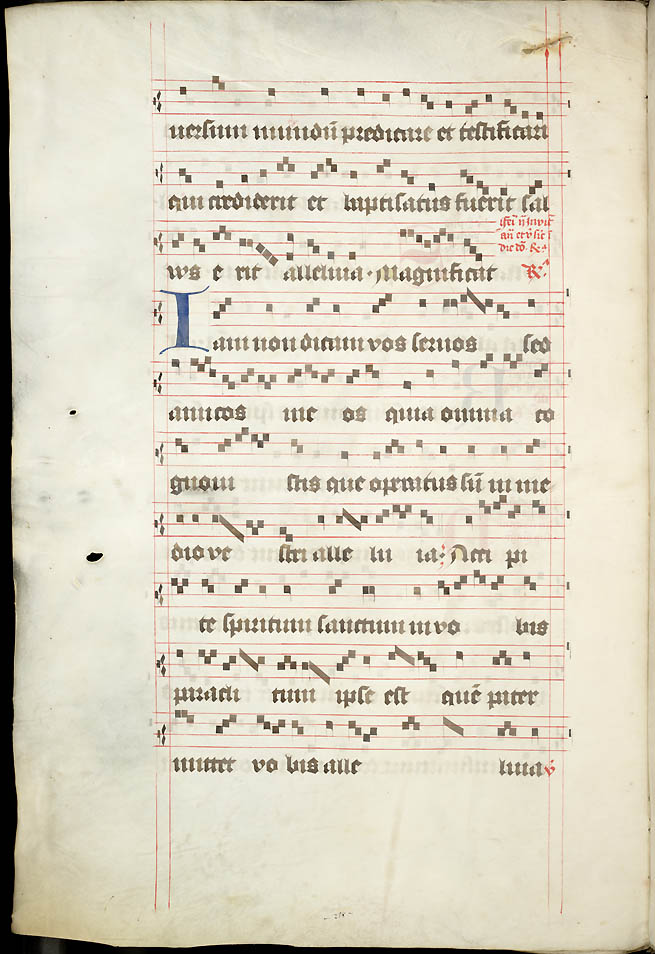 uersum mundū predicare et testificari
qui crediderit et baptisatus fuerit sal
uus e rit alleluia Magnificat R
Iam non dicam vos seruos sed
amicos me os quia omnia co
gnoui stis que operatus sū in me
dio ve stri alle lu ia Acci pi
te spiritum sanctum in vo bis
paracli tum ipse est quē pater
mittet vo bis alle luia v